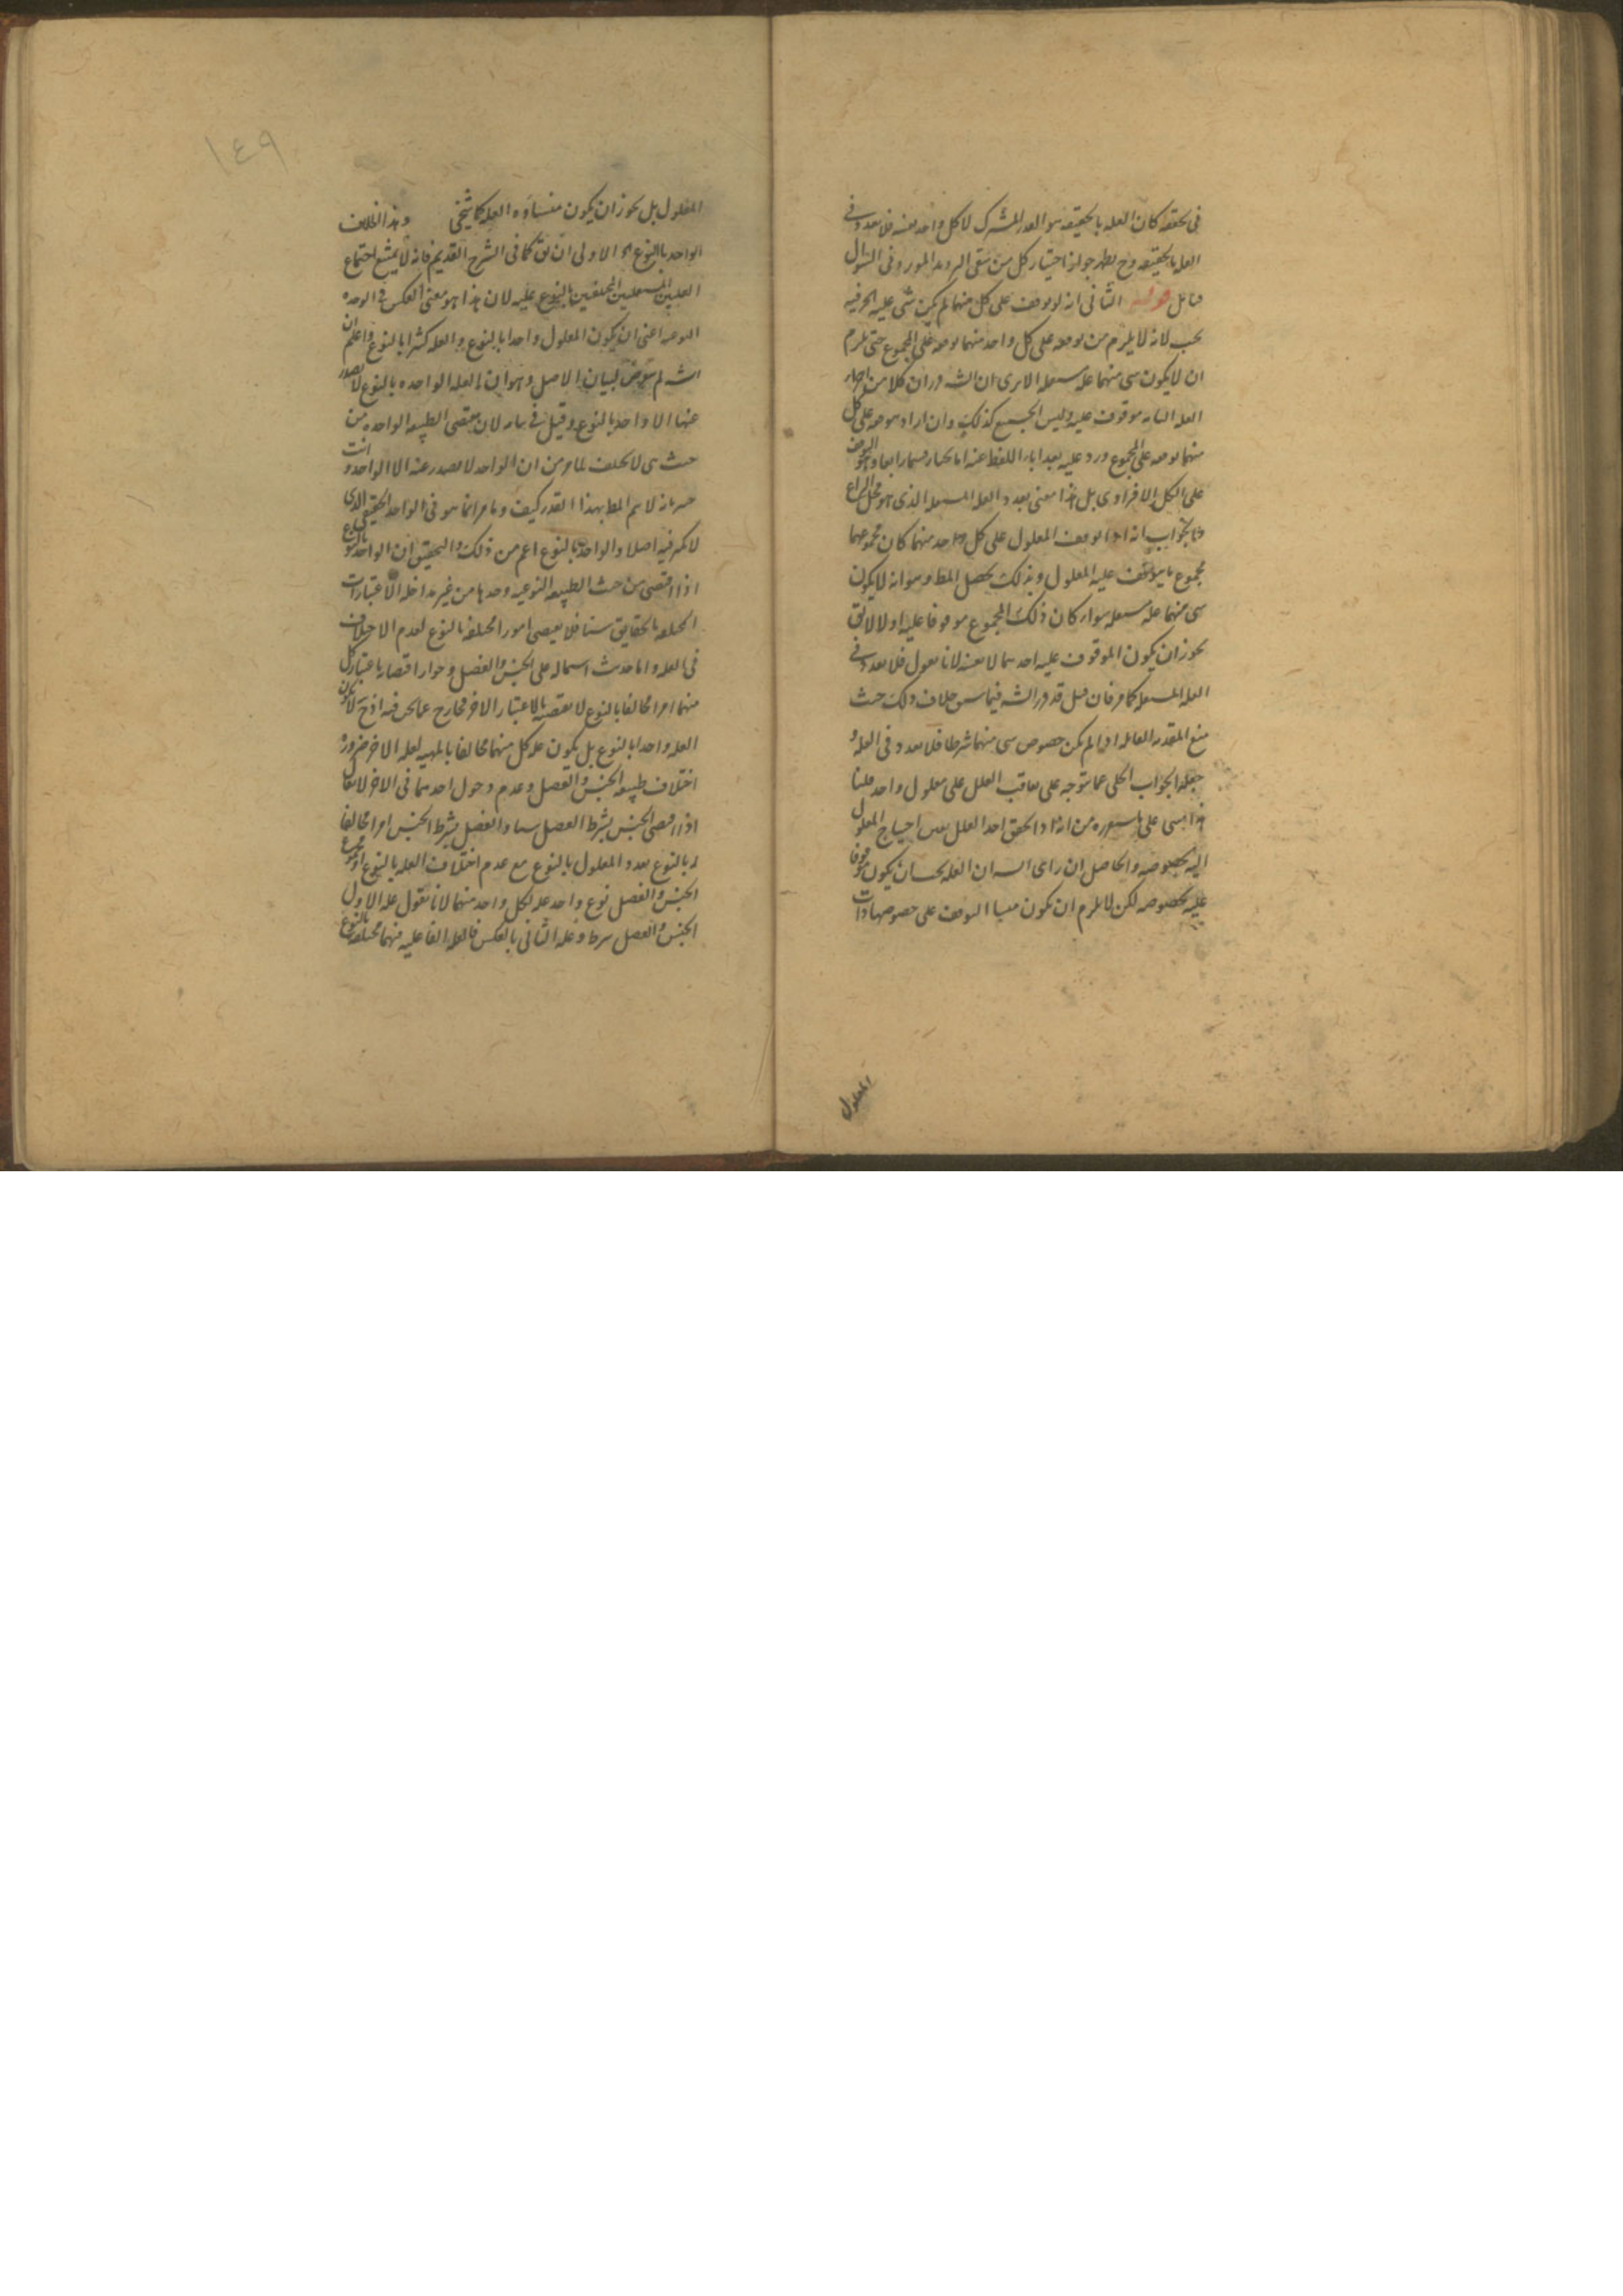 فى تحققه كان العله بالحقيقه هو القدر المشترك لا كل واحد بعينه فلا تعدد فى
العله بالحقيقه وح يظهر جواز اختيار كل من شقى الترديد المورد فى السؤال
فتامل قوله الثانى انه لو توقف على كل منهما لم يكن شى عليه الخ فيه
بحث لانه لا يلزم من توقفه على كل واحد منهما توقفه على المجموع حتى يلزم
ان لا يكون شى منهما عله مستقله الا يرى ان الشه قرر ان كلا من اجزاء
العله التامه موقوف عليه وليس الجميع كذلك وان اراد بتوقفه على كل
منهما توقفه على المجموع ورد عليه بعد اباء اللفظ عنه
على الكل الافرادى بل هذا معنى تعدد العله المستقله الذى هو محل النزاع
فالجواب انه اذا توقف المعلول على كل واحد منهما كان مجموعهما
مجموع ما يتوقف عليه المعلول وبذلك يحصل المط وهو انه لا يكون
شى منهما عله مستقله سواء كان ذلك المجموع موقوفا عليه او لا لا يق
يجوز ان يكون الموقوف عليه احدهما لا بعينه لانا نقول فلا تعدد فى
العله المستقله كما مر فان قيل قد قرر الشه فيما سبق خلاف ذلك حيث
منع المقدمه القائله اذا لم يكن خصوص شى منهما شرطا فلا تعدد فى العله و
جعله الجواب الحلى عما يتوجه على تعاقب العلل على معلول واحد قلنا
هذا مبنى على ما من انه اذا تحقق احد العلل تعين احتياج المعلول
اليه بخصوصه والحاصل ان راى الشه ان العله يجب ان يكون موقوفا
عليه بخصوصه لكن لا يلزم ان يكون منشا التوقف على خصوصها ذات
المعلول
١٤٩
المعلول بل يجوز ان يكون منشاؤه العله كما سيجئ وهذا بخلاف
الواحد بالنوع الخ الاولى ان يق كما فى الشرح القديم فانه لا يمتنع اجتماع
العلتين المستقلتين المختلفتين بالنوع عليه لان هذا هو معنى العكس فى الوحده
النوعيه اعنى ان يكون المعلول واحدا بالنوع والعله كثيرا بالنوع واعلم ان
الشه لم يتعرض لبيان الاصل وهو ان العله الواحده بالنوع لا يصدر
عنها الا واحد بالنوع وقيل فى بيانه لان مقتضى الطبيعه الواحده من
حيث هى لا يختلف لما مر من ان الواحد لا يصدر عنه الا الواحد وانت
خبير بانه لا يتم المط بهذا القدر كيف وما مر انما هو فى الواحد الحقيقى الذى
لا تكثر فيه اصلا والواحد بالنوع اعم من ذلك والتحقيق ان الواحد بالنوع
اذا اقتضى من حيث الطبيعه النوعيه وحدها من غير مداخله الاعتبارات
المختلفه بالحقايق شيئا فلا يقتضى امورا مختلفه بالنوع لعدم الاختلاف
فى العله واما حديث اشتماله على الجنس والفصل وجواز اقتضائه باعتبار كل
منهما امرا مخالفا بالنوع لا يقتضيه بالاعتبار الاخر فخارج عما نحن فيه اذ ح لا يكون
العله واحدا بالنوع بل يكون عله كل منهما مخالفا بالمهيه لعله الاخر ضروره
اختلاف طبيعه الجنس والفصل وعدم دخول احدهما فى الاخر لا يقال
اذا اقتضى الجنس بشرط الفصل شيئا والفصل بشرط الجنس امرا مخالفا
له بالنوع تعدد المعلول بالنوع مع عدم اختلاف العله بالنوع اذ مجموع
الجنس والفصل نوع واحد عله لكل واحد منهما لانا نقول عله الاول
الجنس والفصل شرط وعله الثانى بالعكس فالعله الفاعليه فيهما مختلفه بالنوع